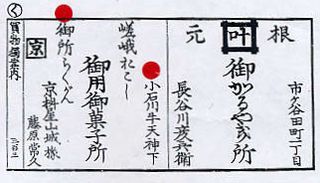 市ヶ谷田町一丁目
根叶元
御かるやき所
長谷川彦兵衛
小石川牛天神下
嵯峨おこし
御用御菓子所
御所らくがん
京
京桝屋山城掾
藤原常久
く
買物獨案内